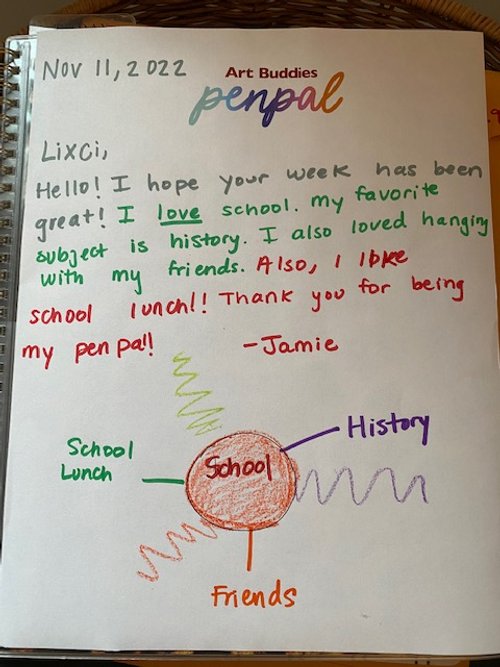 Nov 11, 2022
Art Buddies
penpal
Lixci,
Hello! I hope your week has been
great! I love school. my favorite
subject is history. I also loved hanging
with my friends. Also, I like
school lunch!! Thank you for being
my pen pal!
-Jamie
School
Lunch
School
History
Friends